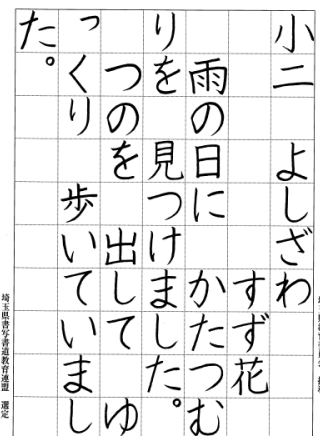 小二 よしざわ
すず花
雨の日に かたつむ
りを 見つけました。
つのを 出して ゆ
っくり 歩いていまし
た。
埼玉県書写書道教育連盟 選定